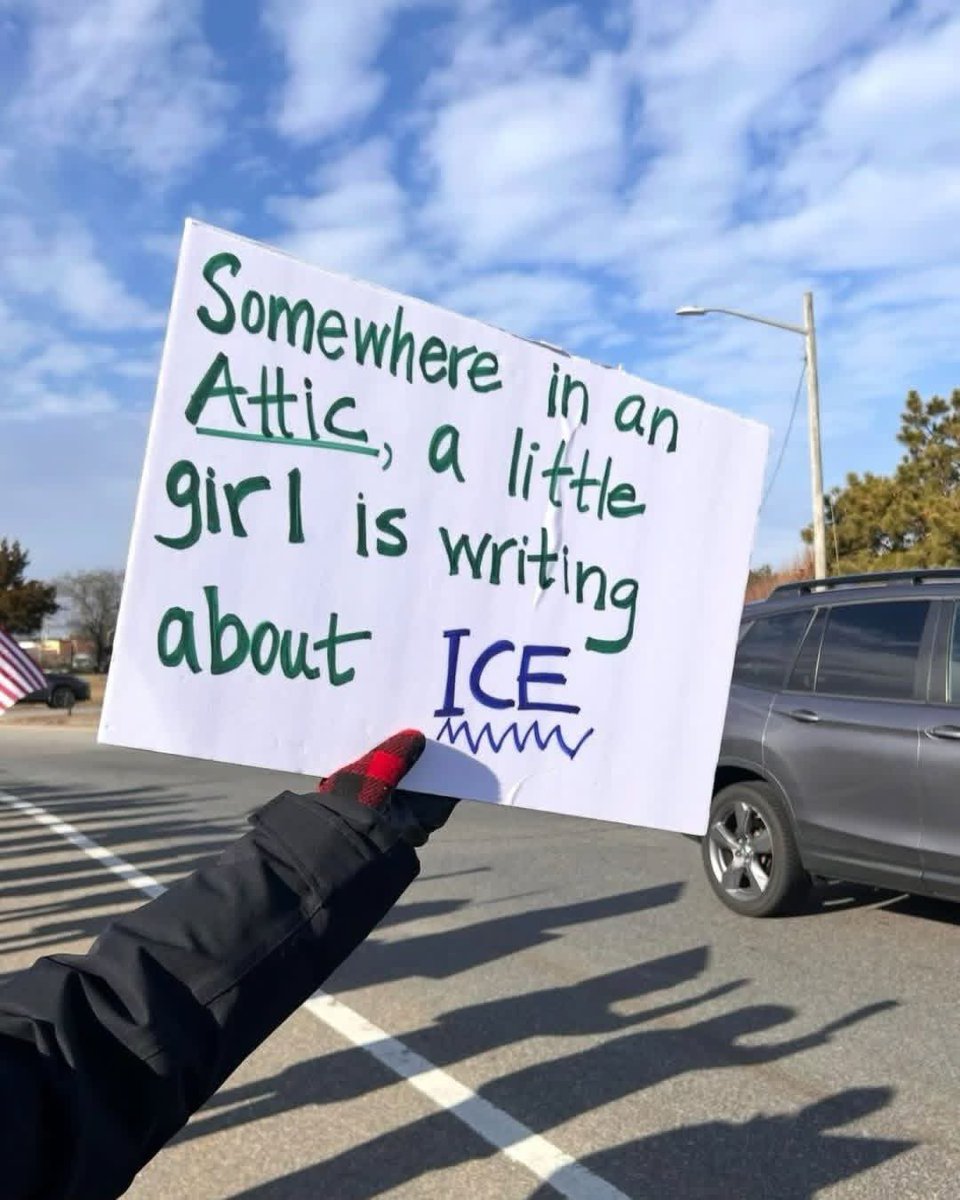 Somewhere in an
Attic, a little
girl is writing
about ICE